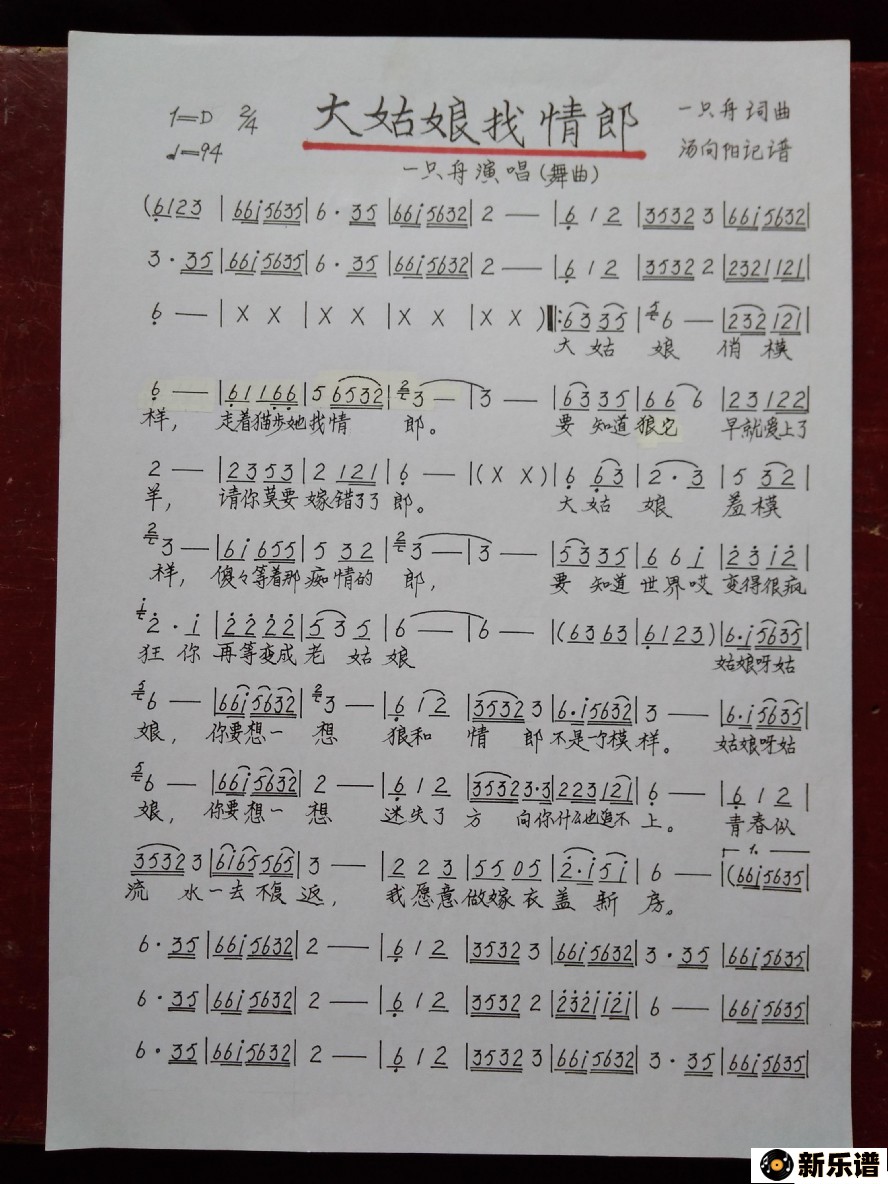 1=D 2/4
♩=94
大姑娘找情郎
一只舟词曲
汤向阳记谱
一只舟演唱(舞曲)
(6123 |66i5635|6·35|66i5632|2—|612|353233|66i5632|
3·35|66i5635|6·35|66i5632|2—|612|353232|2321121|
6—|X X|X X|X X|X X)‖:6335|5 6—|232121|
大姑娘俏模
6—|61166|56532|2 3—|3—|6335|666|23122|
样，走着猫步她找情郎。要知道狼它早就爱上了
2—|2353|2121|6—|(X X)|663|2·3|532|
羊，请你莫要嫁错了了郎。大姑娘羞模
2 3—|6i655|532|2 3—|3—|5335|66i|23i2|
样，傻々等着那痴情的郎，要知道世界哎变得很疯
i 2·i|2222|535|6—|6—|(6363|6123)|6·i5635|
狂你再等变成老姑娘姑娘呀姑
5 6—|66i5632|2 3—|612|35323|6·i5632|3—|6·i5635|
娘，你要想一想狼和情郎不是亇模样。姑娘呀姑
5 6—|66i5632|2—|612|35323·3|223121|6—|612|
娘，你要想一想迷失了方向你什么也追不上。青春似
1.
35323|6i65565|3—|223|5505|2·i5i|6—|(66i5635|
流水一去不复返，我愿意做嫁衣盖新房。
6·35|66i5632|2—|612|35323|66i5632|3·35|66i5635|
6·35|66i5632|2—|612|35322|232ii2i|6—|66i5635|
6·35|66i5632|2—|612|35323|66i5632|3·35|66i5635|
新乐谱